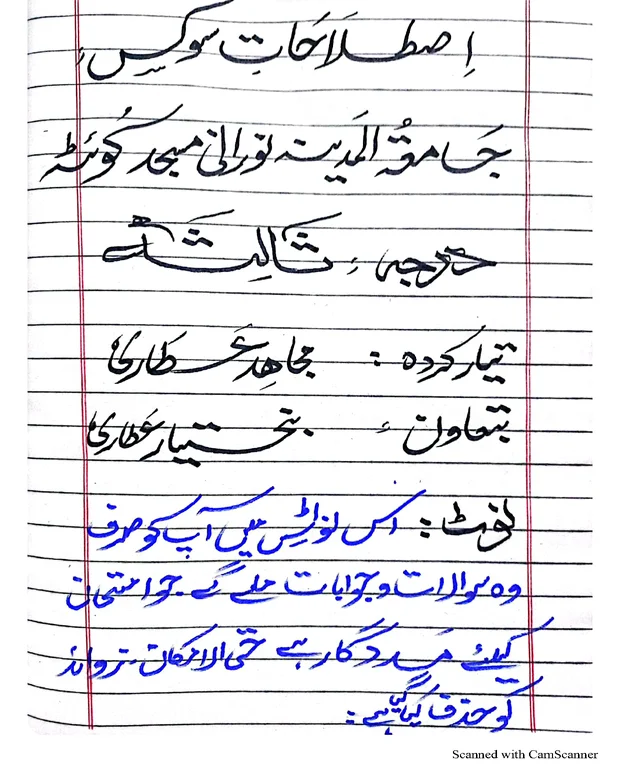 اِصطلاحات سوکس
جَامعۃُ المَدینہ نورانی مسجد کُوئٹہ
درجہ : ثَالِثَہ
تیار کردہ : مجاھد عطاری
بتعاون : بختیار عطاری
نوٹ : اس نوٹس میں آپ کو صرف
وہ سوالات و جوابات ملے گے جو امتحان
کیلئے مددگار ہے حتی الامکان زوائد
کو حذف کیا گیا ہے :
Scanned with CamScanner